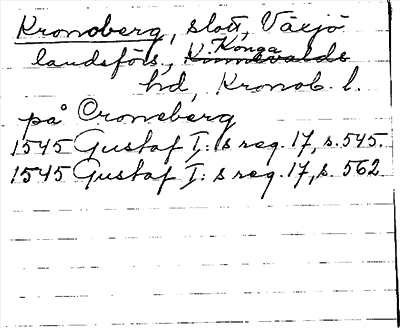 Kronoberg, slott, Växjö
landsförs., Konga
hd, Kronob. l.
på Croneberg
1545 Gustaf I:s reg. 17, s. 545.
1545 Gustaf I:s reg. 17, s. 562